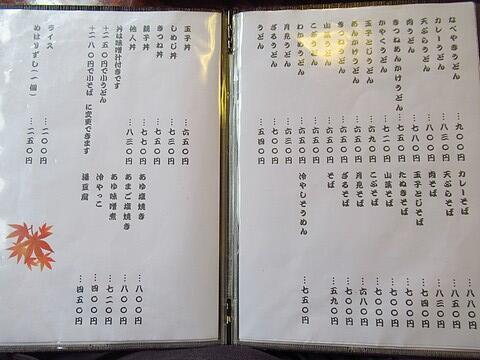 なべやきうどん …九〇〇円
カレーうどん …八三〇円
天ぷらうどん …八〇〇円
肉うどん
きつねあんかけうどん …七五〇円
かやくうどん …七一〇円
玉子とじうどん …六九〇円
あんかけうどん
きつねうどん …六五〇円
山菜うどん …六五〇円
こぶうどん …六五〇円
わかめうどん …六五〇円
月見うどん …六三〇円
ざるうどん …六五〇円
うどん …五四〇円
カレーそば …八八〇円
天ぷらそば …八五〇円
肉そば …八三〇円
玉子とじそば …七四〇円
たぬきそば …七〇〇円
きつねそば …七〇〇円
山菜そば …七〇〇円
こぶそば …七〇〇円
月見そば …六八〇円
ざるそば …七〇〇円
そば …五九〇円
冷やしそうめん …七五〇円
玉子丼 …六五〇円
しめじ丼 …七三〇円
きつね丼 …六五〇円
親子丼 …七七〇円
他人丼 …八三〇円
丼は味噌汁付きです
+二五〇円で小うどん
+二八〇円で小そば に変更できます
ライス …二〇〇円
めはりずし(一個) …二五〇円
あゆ塩焼き …八〇〇円
あまご塩焼き …八〇〇円
あゆ味噌煮 …七二〇円
冷やっこ …四〇〇円
湯豆腐 …四五〇円